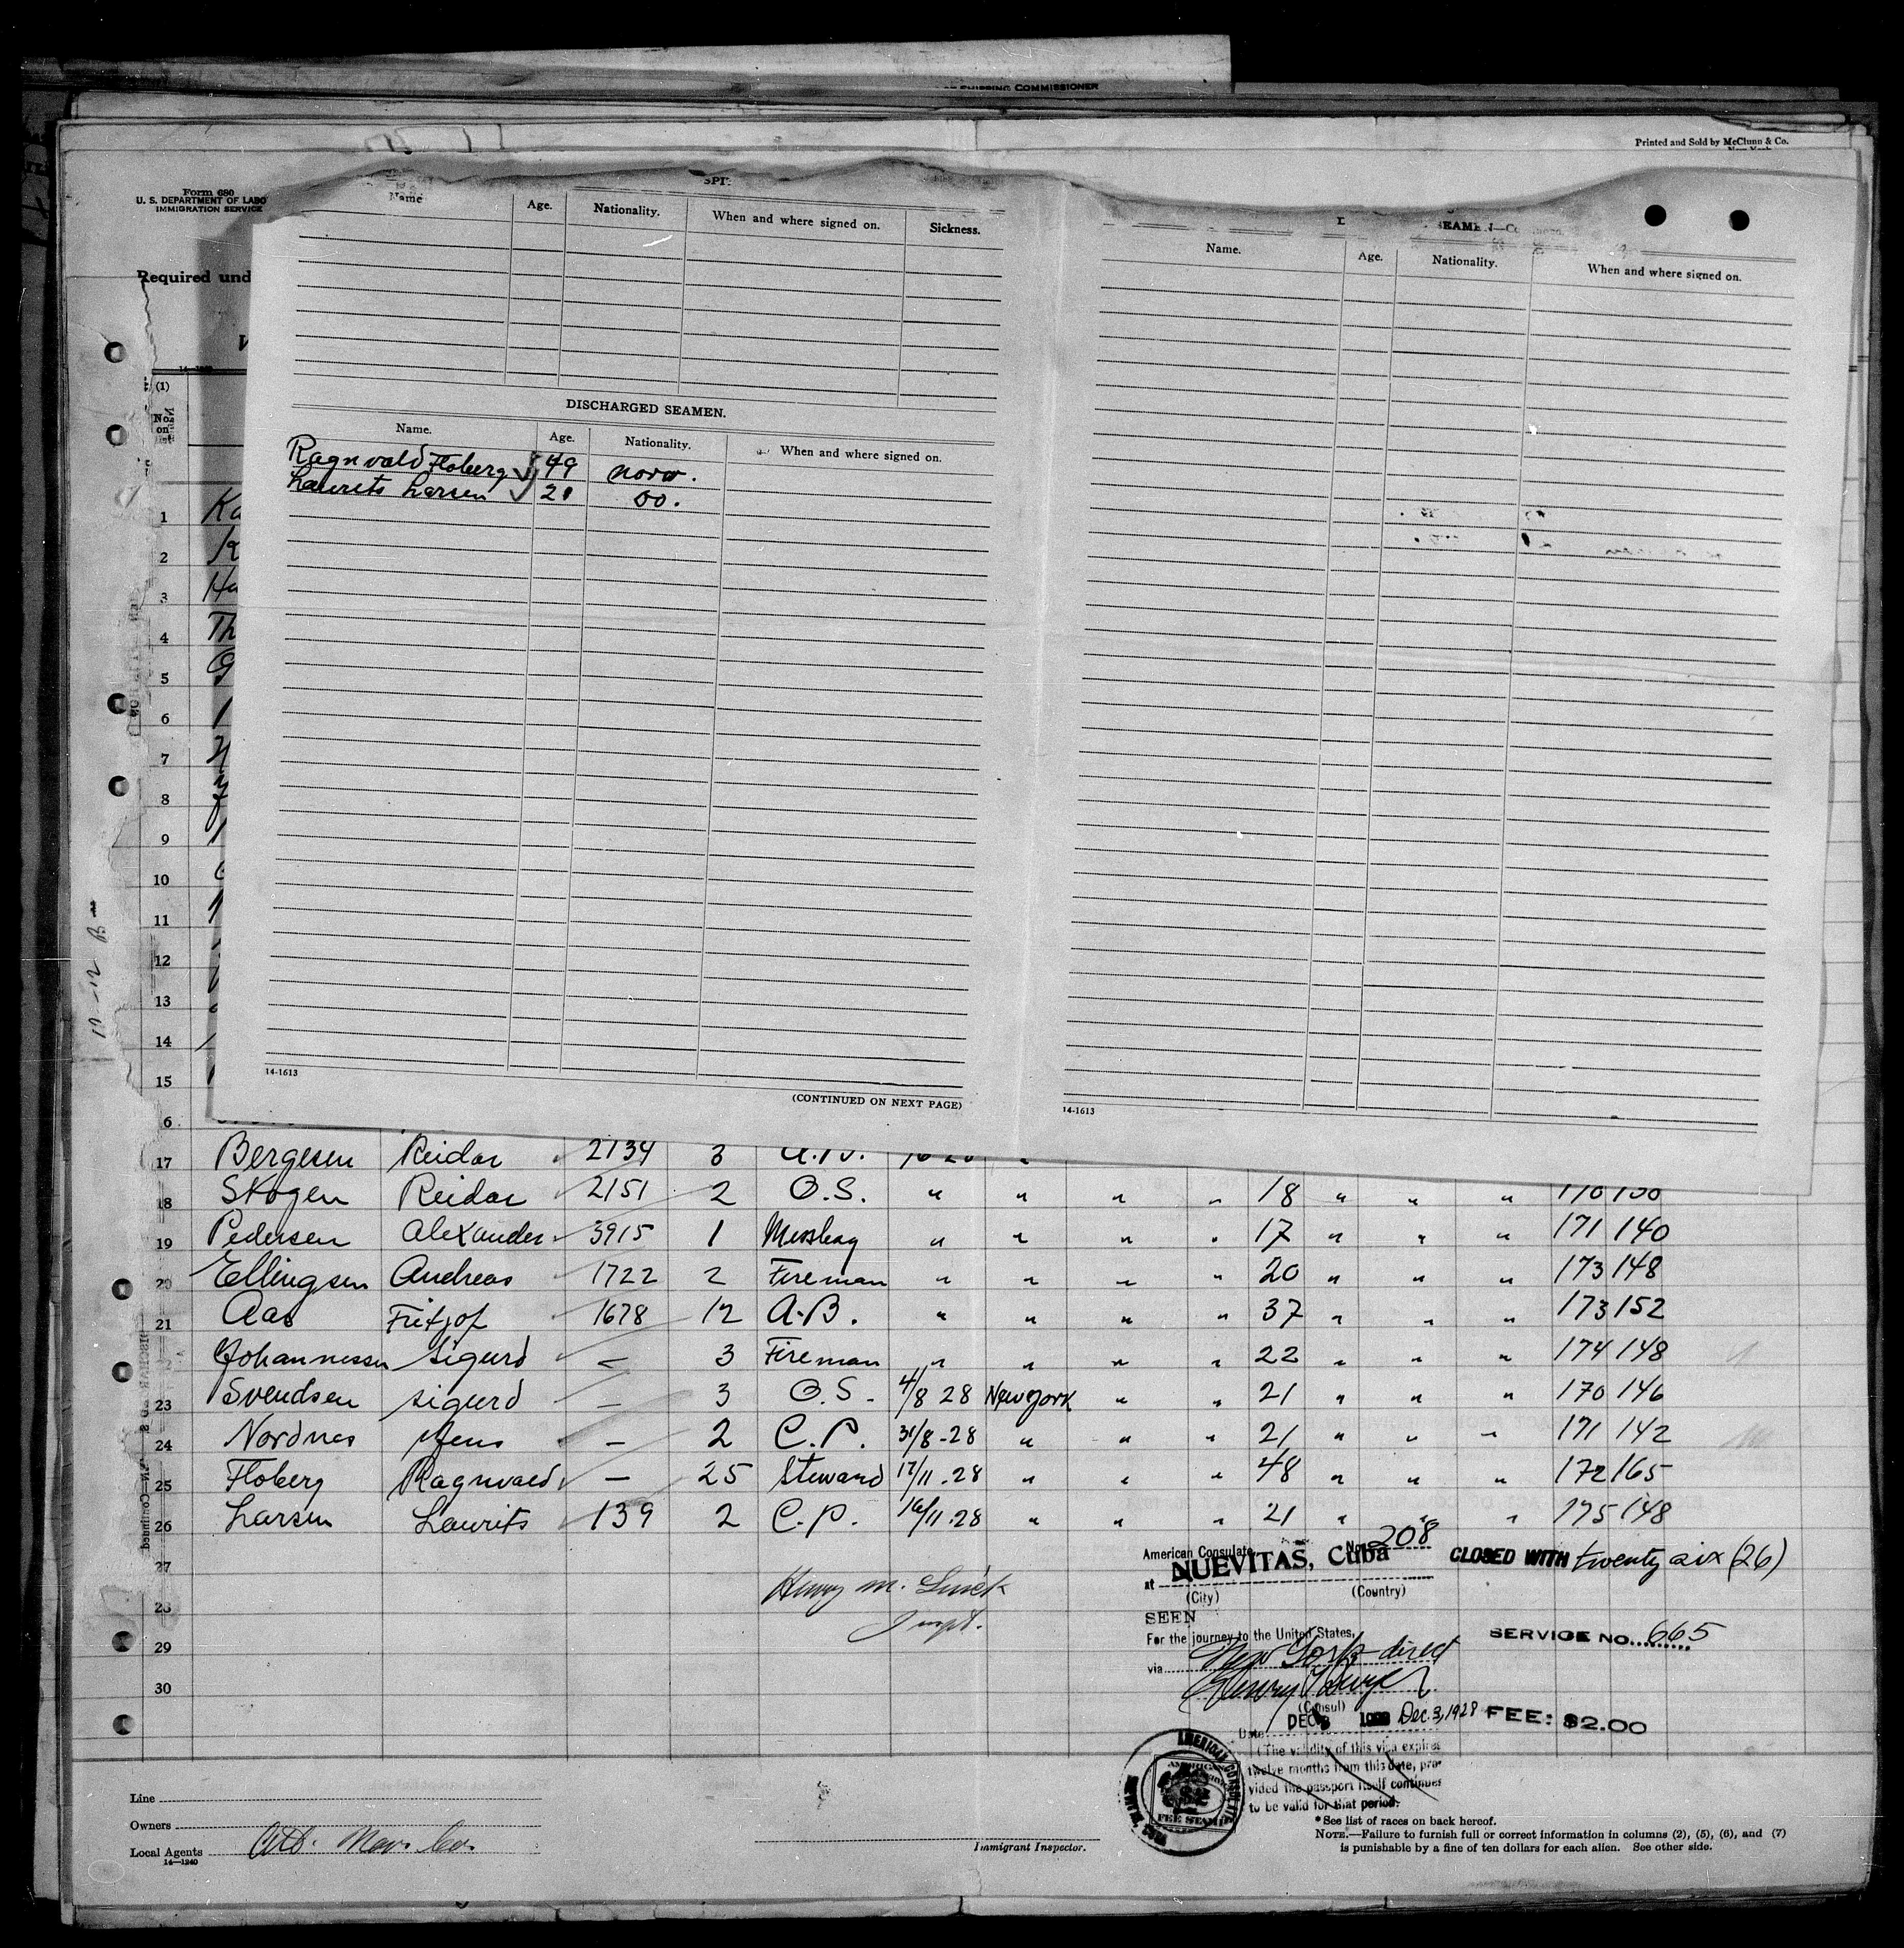 OF SHIPPING COMMISSIONER
Printed and Sold by McClunn & Co.
New York
Form 680
U. S. DEPARTMENT OF LABO
IMMIGRATION SERVICE
Required und
14-1240
(1)
No. on list
Name Age. Nationality. When and where signed on. Sickness.
DISCHARGED SEAMEN.
Name. Age. Nationality. When and where signed on.
Ragnvald Floberg 49 norw.
Laurits Larsen 21 do.
14-1613
(CONTINUED ON NEXT PAGE)
SEAMEN—Co
Name. Age. Nationality. When and where signed on.
14-1613
1 Ka
2 K
3 Ha
4 Th
5
6
7
8
9
10
11
12
13
14
15
6
17 Bergesen Reidar 2134 3 A.B.
18 Skogen Reidar 2151 2 O.S. " " " " 18 " " " 170 150
19 Pedersen Alexander 3915 1 Messboy " " " " 17 " " " 171 140
20 Ellingsen Andreas 1722 2 Fireman " " " " 20 " " " 173 148
21 Aas Fritjof 1678 12 A.B. " " " " 37 " " " 173 152
22 Johannessen Sigurd – 3 Fireman " " " " 22 " " " 174 148
23 Svendsen Sigurd – 3 O.S. 4/8 28 New york " " 21 " " " 170 146
24 Nordnes Jens – 2 C.P. 31/8-28 " " " 21 " " " 171 142
25 Floberg Ragnvald – 25 Steward 17/11.28 " " " 48 " " " 172 165
26 Larsen Laurits 139 2 C.P. 16/11.28 " " " 21 " " " 175 148
27
28
29
30
10-12 B
Inspt.
American Consulate No. 208
at NUEVITAS, Cuba
(City) (Country)
CLOSED WITH twenty six (26)
SEEN
For the journey to the United States,
via New York direct
SERVICE NO. 665
(Consul)
Date DEC 3 1928 Dec. 3, 1928
FEE: $2.00
(The validity of this visa expires
twelve months from this date, pro-
vided the passport itself continues
to be valid for that period.
AMERICAN CONSULATE
FEE STAMP
Line
Owners
Local Agents Atl. Nav. Co.
14—1240
Immigrant Inspector.
* See list of races on back hereof.
NOTE.—Failure to furnish full or correct information in columns (2), (5), (6), and (7)
is punishable by a fine of ten dollars for each alien. See other side.